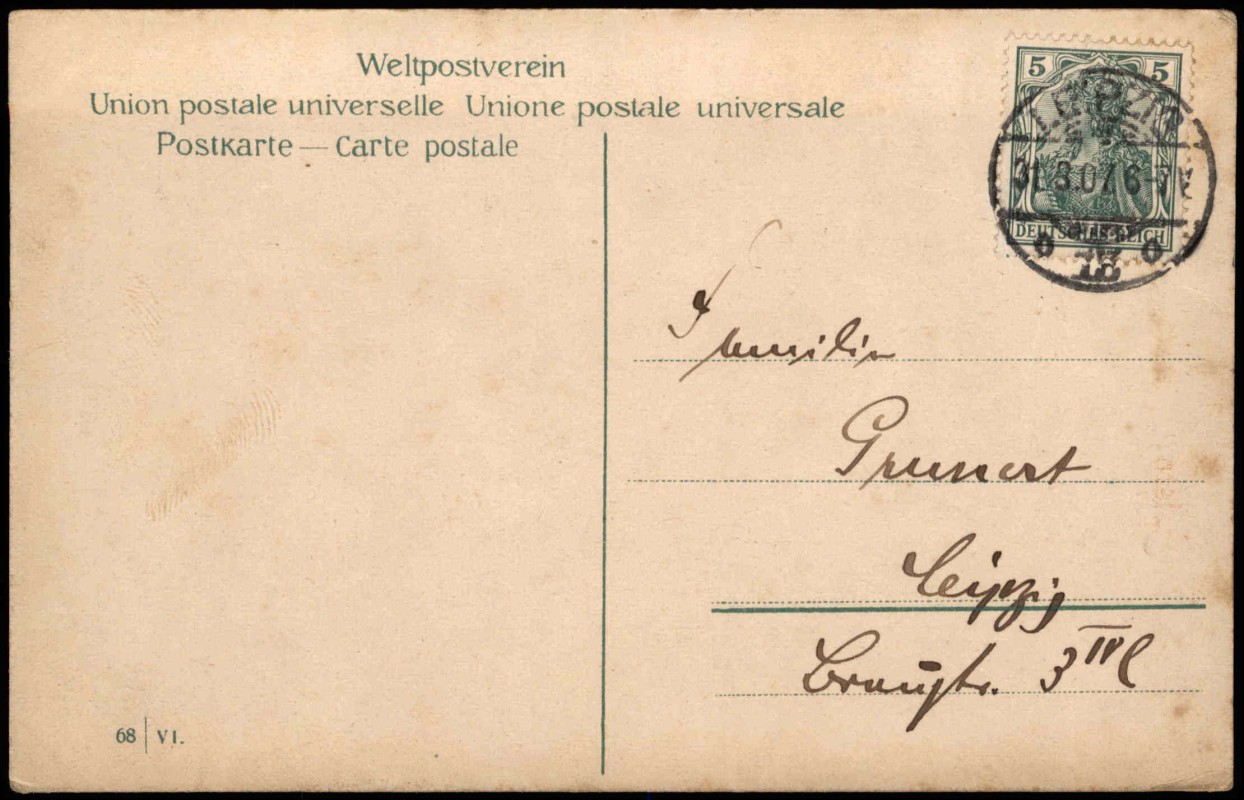 Weltpostverein
Union postale universelle Unione postale universale
Postkarte — Carte postale
5 5
LEIPZIG
31.3.07. 6-7
DEUTSCHES REICH
Familie
Grunert
Leipzig
Braustr. 3 IV l
68 | VI.